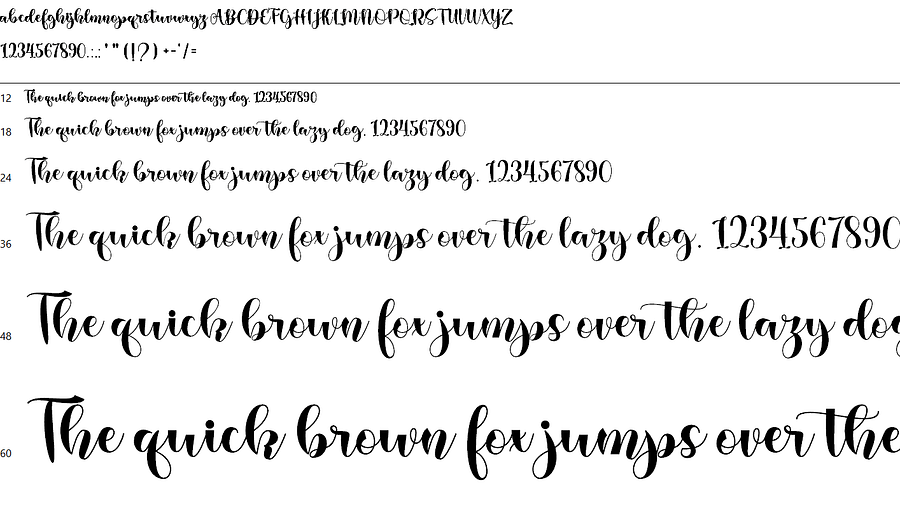 abcdefghijklmnopqrstuvwxyz ABCDEFGHIJKLMNOPQRSTUVWXYZ
1234567890.:,; ' " (!?) +-*/=
12 The quick brown fox jumps over the lazy dog. 1234567890
18 The quick brown fox jumps over the lazy dog. 1234567890
24 The quick brown fox jumps over the lazy dog. 1234567890
36 The quick brown fox jumps over the lazy dog. 1234567890
48 The quick brown fox jumps over the lazy dog
60 The quick brown fox jumps over the